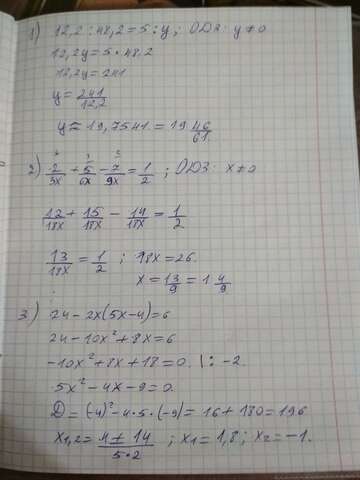 1) 12,2 : 48,2 = 5 : y ; ОДЗ: y ≠ 0
12,2y = 5 * 48,2
12,2y = 241
y = 241/12,2
y ≈ 19,7541 = 19 46/61.
2) 2/3x + 5/6x - 7/9x = 1/2 ; ОДЗ: x ≠ 0
12/18x + 15/18x - 14/18x = 1/2
13/18x = 1/2 ; 18x = 26.
x = 13/9 = 1 4/9
3.) 24 - 2x(5x-4) = 6
24 - 10x² + 8x = 6
-10x² + 8x + 18 = 0. |: -2.
5x² - 4x - 9 = 0.
D = (-4)² - 4·5·(-9) = 16 + 180 = 196
x1,2 = 4 ± 14/5·2 ; x1 = 1,8 ; x2 = -1.